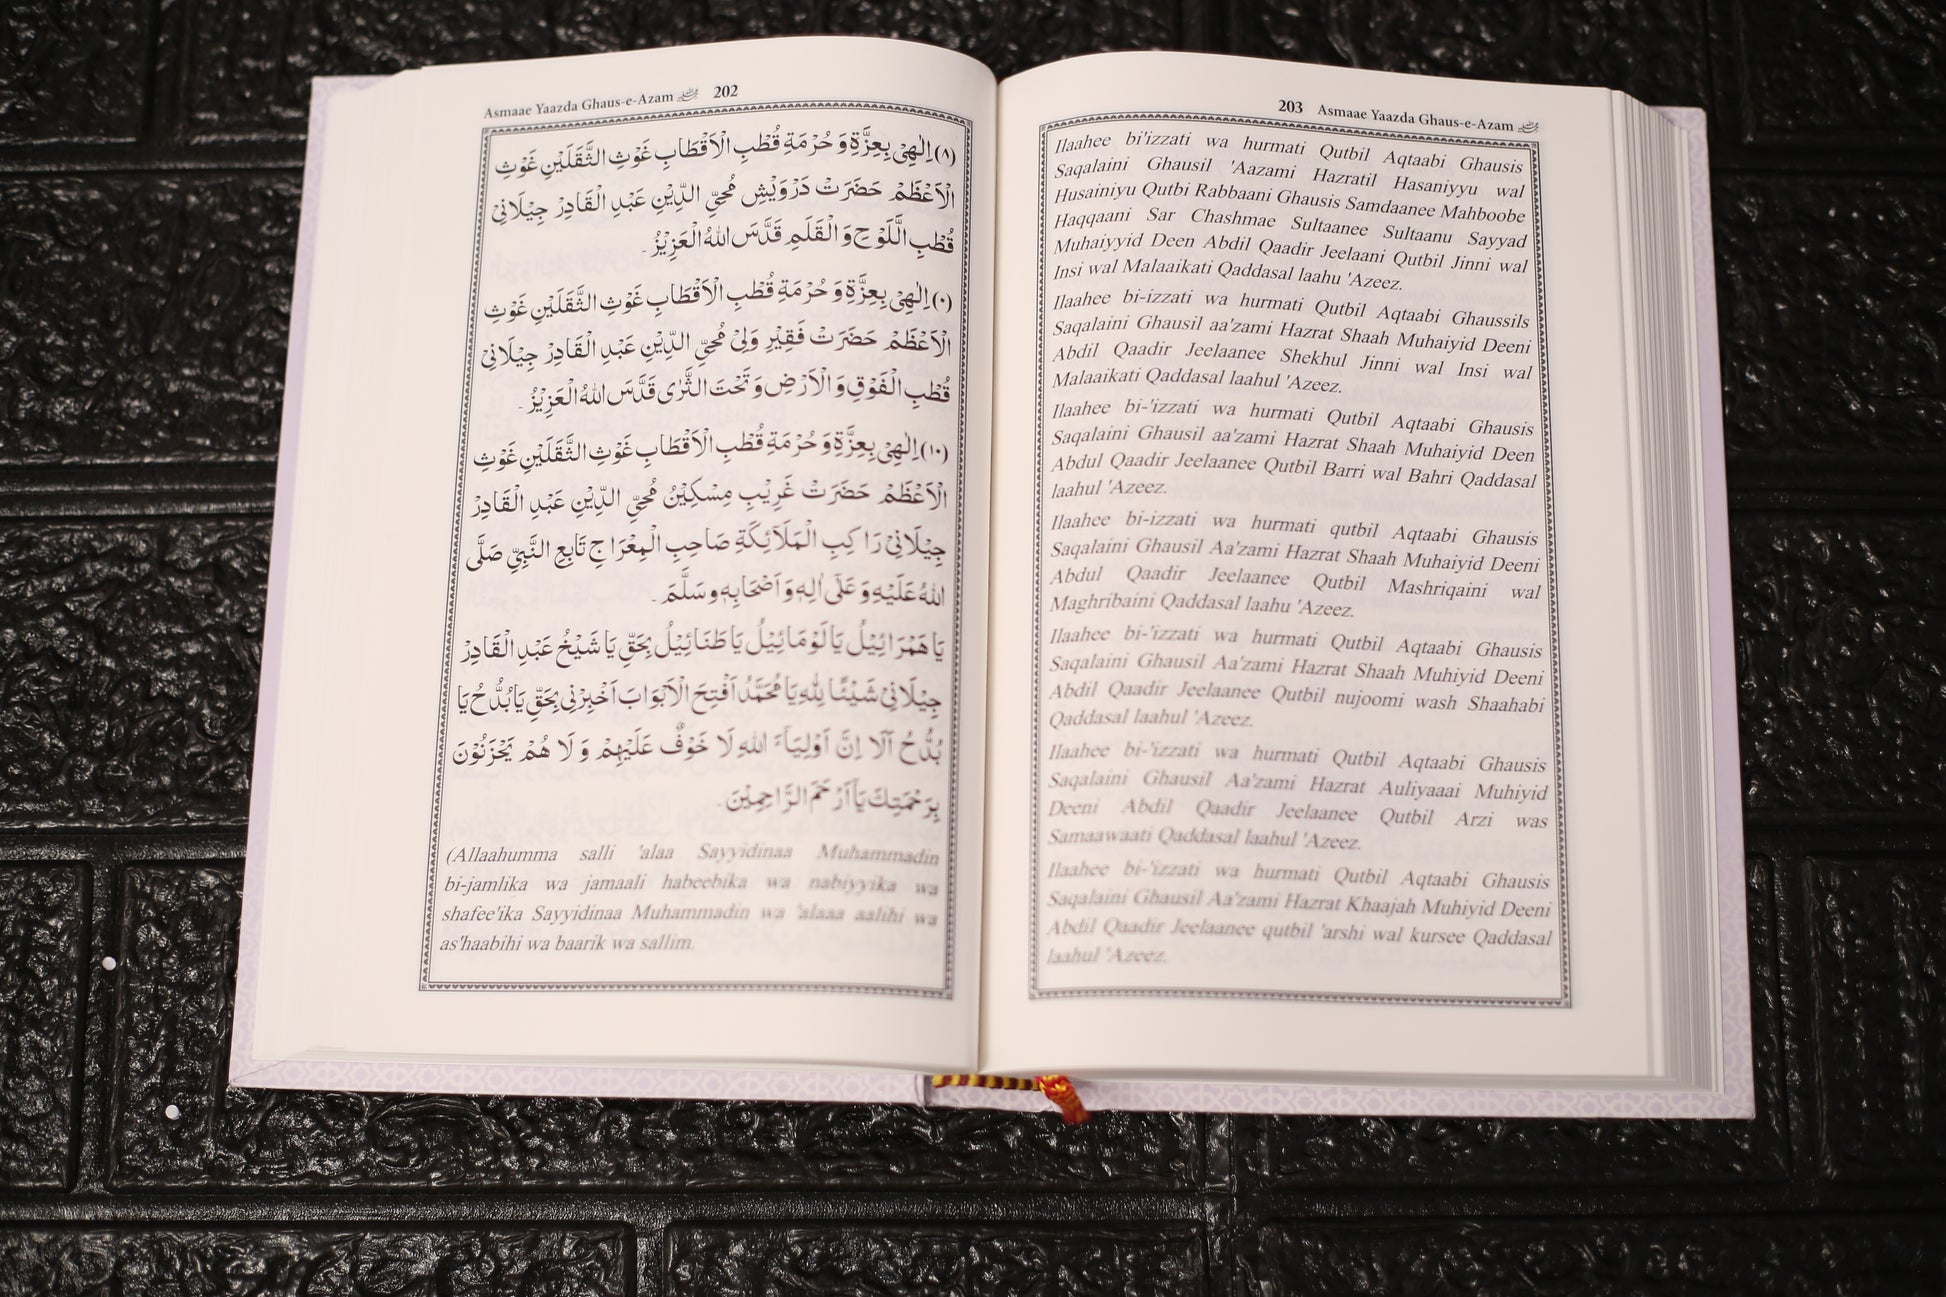 Asmaae Yaazda Ghaus-e-Azam 202
(٨) اِلٰهِيْ بِعِزَّةِ وَ حُرْمَةِ قُطْبِ الْاَقْطَابِ غَوْثِ الثَّقَلَيْنِ غَوْثِ
الْاَعْظَمْ حَضَرَتْ دَرْوَيْشِ مُحِيِّ الدِّيْنِ عَبْدِ الْقَادِرْ جِيْلَانِيْ
قُطْبِ اللَّوْحِ وَ الْقَلَمِ قَدَّسَ اللهُ الْعَزِيْزُ۔
(٠) اِلٰهِيْ بِعِزَّةِ وَ حُرْمَةِ قُطْبِ الْاَقْطَابِ غَوْثِ الثَّقَلَيْنِ غَوْثِ
الْاَعْظَمْ حَضَرَتْ فَقِيْرِ وَلِيْ مُحِيِّ الدِّيْنِ عَبْدِ الْقَادِرْ جِيْلَانِيْ
قُطْبِ الْفَوْقِ وَ الْاَرْضِ وَ تَحْتَ الثَّرٰى قَدَّسَ اللهُ الْعَزِيْزُ۔
(١٠) اِلٰهِيْ بِعِزَّةِ وَ حُرْمَةِ قُطْبِ الْاَقْطَابِ غَوْثِ الثَّقَلَيْنِ غَوْثِ
الْاَعْظَمْ حَضَرَتْ غَرِيْبِ مِسْكِيْنُ مُحِيِّ الدِّيْنِ عَبْدِ الْقَادِرْ
جِيْلَانِيْ رَاكِبِ الْمَلَآئِكَةِ صَاحِبِ الْمِعْرَاجِ تَابِعِ النَّبِيِّ صَلَّى
اللهُ عَلَيْهِ وَ عَلٰى اٰلِهٖ وَ اَصْحَابِهٖ وَسَلَّمَ۔
يَا هَمْرَائِيْلُ يَا لَوْمَائِيْلُ يَا طَنَائِيْلُ بِحَقِّ يَا شَيْخُ عَبْدِ الْقَادِرْ
جِيْلَانِيْ شَيْئًا لِلهِ يَا مُحَمَّدُ اَفْتِحَ الْاَبْوَابَ اَخْبِرْنِي بِحَقِّ يَا بُدُّحُ يَا
بُدُّحُ اَلَا اِنَّ اَوْلِيَآءَ اللهِ لَا خَوْفٌ عَلَيْهِمْ وَ لَا هُمْ يَحْزَنُوْنَ
بِرَحْمَتِكَ يَا اَرْحَمَ الرَّاحِمِيْنَ۔
(Allaahumma salli 'alaa Sayyidinaa Muhammadin
bi-jamlika wa jamaali habeebika wa nabiyyika wa
shafee'ika Sayyidinaa Muhammadin wa 'alaaa aalihi wa
as'haabihi wa baarik wa sallim.
203 Asmaae Yaazda Ghaus-e-Azam
Ilaahee bi'izzati wa hurmati Qutbil Aqtaabi Ghausis
Saqalaini Ghausil 'Aazami Hazratil Hasaniyyu wal
Husainiyu Qutbi Rabbaani Ghausis Samdaanee Mahboobe
Haqqaani Sar Chashmae Sultaanee Sultaanu Sayyad
Muhaiyyid Deen Abdil Qaadir Jeelaani Qutbil Jinni wal
Insi wal Malaaikati Qaddasal laahu 'Azeez.
Ilaahee bi-izzati wa hurmati Qutbil Aqtaabi Ghaussils
Saqalaini Ghausil aa'zami Hazrat Shaah Muhaiyid Deeni
Abdil Qaadir Jeelaanee Shekhul Jinni wal Insi wal
Malaaikati Qaddasal laahul 'Azeez.
Ilaahee bi-'izzati wa hurmati Qutbil Aqtaabi Ghausis
Saqalaini Ghausil aa'zami Hazrat Shaah Muhaiyid Deen
Abdul Qaadir Jeelaanee Qutbil Barri wal Bahri Qaddasal
laahul 'Azeez.
Ilaahee bi-izzati wa hurmati qutbil Aqtaabi Ghausis
Saqalaini Ghausil Aa'zami Hazrat Shaah Muhaiyid Deeni
Abdul Qaadir Jeelaanee Qutbil Mashriqaini wal
Maghribaini Qaddasal laahu 'Azeez.
Ilaahee bi-'izzati wa hurmati Qutbil Aqtaabi Ghausis
Saqalaini Ghausil Aa'zami Hazrat Shaah Muhiyid Deeni
Abdil Qaadir Jeelaanee Qutbil nujoomi wash Shaahabi
Qaddasal laahul 'Azeez.
Ilaahee bi-'izzati wa hurmati Qutbil Aqtaabi Ghausis
Saqalaini Ghausil Aa'zami Hazrat Auliyaaai Muhiyid
Deeni Abdil Qaadir Jeelaanee Qutbil Arzi was
Samaawaati Qaddasal laahul 'Azeez.
Ilaahee bi-'izzati wa hurmati Qutbil Aqtaabi Ghausis
Saqalaini Ghausil Aa'zami Hazrat Khaajah Muhiyid Deeni
Abdil Qaadir Jeelaanee qutbil 'arshi wal kursee Qaddasal
laahul 'Azeez.